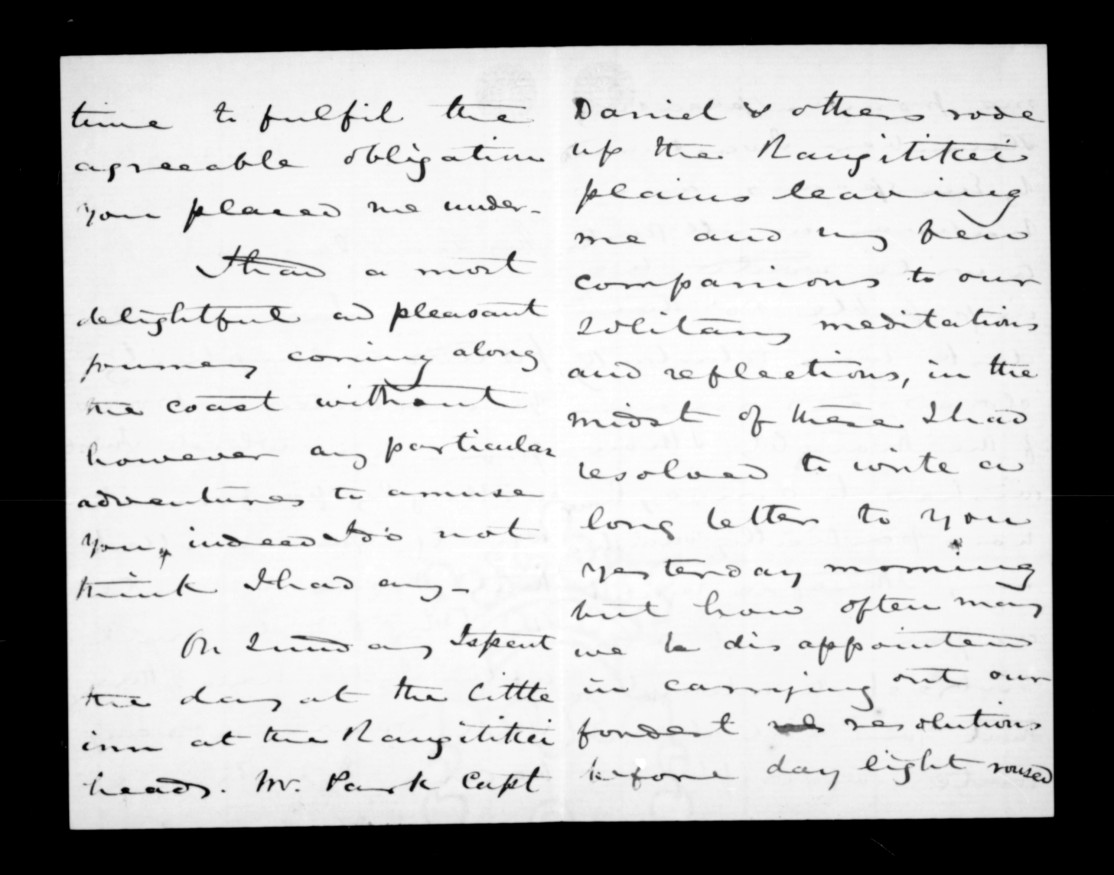 time to fulfil the
agreeable obligation
you placed me under-
I had a most
delightful and pleasant
journey coming along
the coast without
however any particular
adventures to amuse
you, indeed I do not
think I had any-
On Sunday I spent
the day at the little
inn at the Rangitikei
heads. Mr. Park Capt
Daniel & others rode
up the Rangitikei
plains leaving
me and my few
companions to our
solitary meditations
and reflections, in the
midst of these I had
resolved to write a
long letter to you
yesterday morning
but how often may
we be disappointed
in carrying out our
fondest resolutions
before day light roused